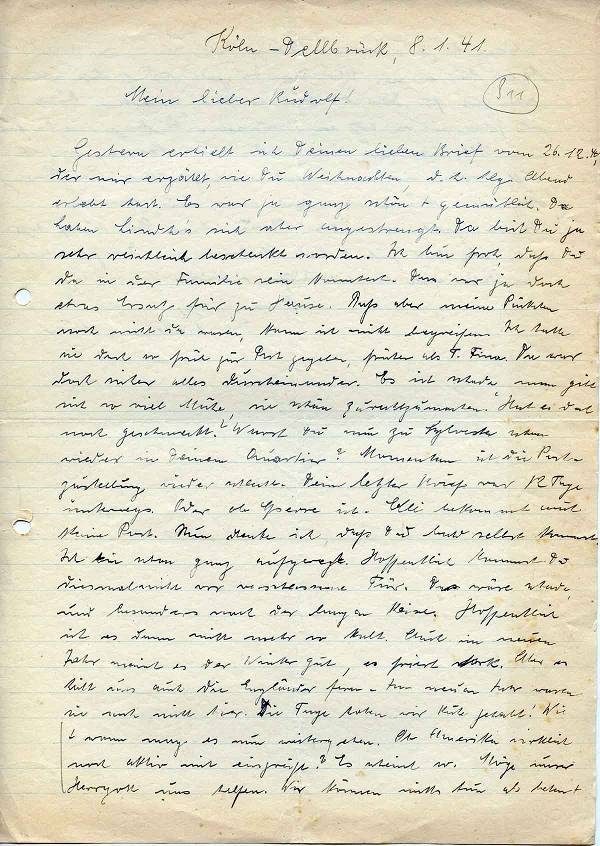 Köln-Dellbrück, 8.1.41
Mein lieber Rudolf!
311.
Gestern erhielt ich Deinen lieben Brief vom 26.12.40,
der mir erzählt, wie Du Weihnachten, d.h. Hlg. Abend
erlebt hast. Es war ja ganz schön + gemütlich. Da
haben sich aber angestrengt. Da bist Du ja
sehr reichlich beschenkt worden. Ich bin froh, daß Du
da in der Familie sein konntest. Das war ja doch
etwas Ersatz für zu Hause. Daß aber meine Päckchen
noch nicht da waren, kann ich nicht begreifen. Ich hatte
sie doch so früh zur Post gegeben, früher als T. Finna. Da war
doch sicher alles durcheinander. Es ist schade, man gibt
sich so viel Mühe, sie schön zurechtzumachen. Hat es Dir
noch geschmeckt? Warst Du nun zu Sylvester schon
wieder in Deinem Quartier? Momentan ist die Post-
zustellung wieder schlecht. Dein letzter Brief war 12 Tage
unterwegs. Oder ob Sperre ist. Elli bekommt auch
keine Post. Nun denke ich, daß Du bald selbst kommst.
Ich bin schon ganz aufgeregt. Hoffentlich kommst Du
diesmal nicht vor verschlossene Tür. Das wäre schade,
und besonders nach der langen Reise. Hoffentlich
ist es dann nicht mehr so kalt. Auch im neuen
Jahr meint es der Winter gut, es friert stark. Aber es
hält uns auch die Engländer fern - Im neuen Jahr waren
sie noch nicht hier. Die Tage haben wir Ruhe gehabt! Wie
+ wann mag es nun weitergehen. Ob Amerika wirklich
noch aktiv mit eingreift? Es scheint so. Möge unser
Herrgott uns helfen. Wir können nichts tun als beten +